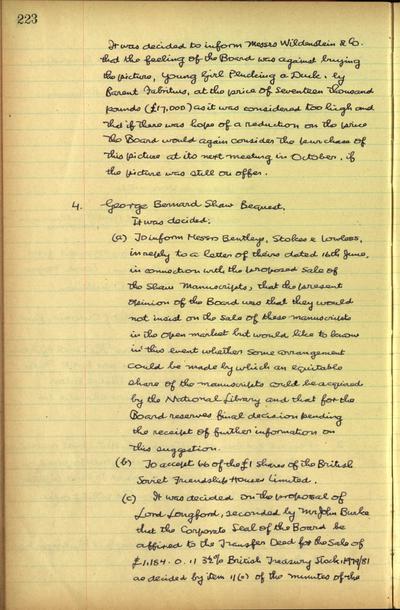 223
It was decided to inform Messrs Wildenstein & Co.
that the feeling of the Board was against buying
the picture, Young Girl Plucking a Duck. by
Barent Fabritius, at the price of Seventeen thousand
pounds (£17,000) as it was considered too high and
that if there was hope of a reduction on the price
the Board would again consider the purchase of
this picture at its next meeting in October, if
the picture was still on offer.
4. George Bernard Shaw Bequest.
It was decided:
(a) To inform Messrs Bentleys, Stokes & Lowless,
in reply to a letter of theirs dated 16th June,
in connection with the proposed sale of
the Shaw Manuscripts, that the present
opinion of the Board was that they would
not insist on the sale of these manuscripts
in the open market but would like to know
in this event whether some arrangement
could be made by which an equitable
share of the manuscripts could be acquired
by the National Library and that for the
Board reserves final decision pending
the receipt of further information on
this suggestion.
(b) To accept 66 of the £1 shares of the British
Soviet Friendship Houses Limited.
(c) It was decided on the proposal of
Lord Longford, seconded by Mr John Burke
that the Corporate Seal of the Board be
affixed to the Transfer Deed for the Sale of
£1,184. 0. 11 3½% British Treasury Stock 1979/81
as decided by item 11(e) of the minutes of the